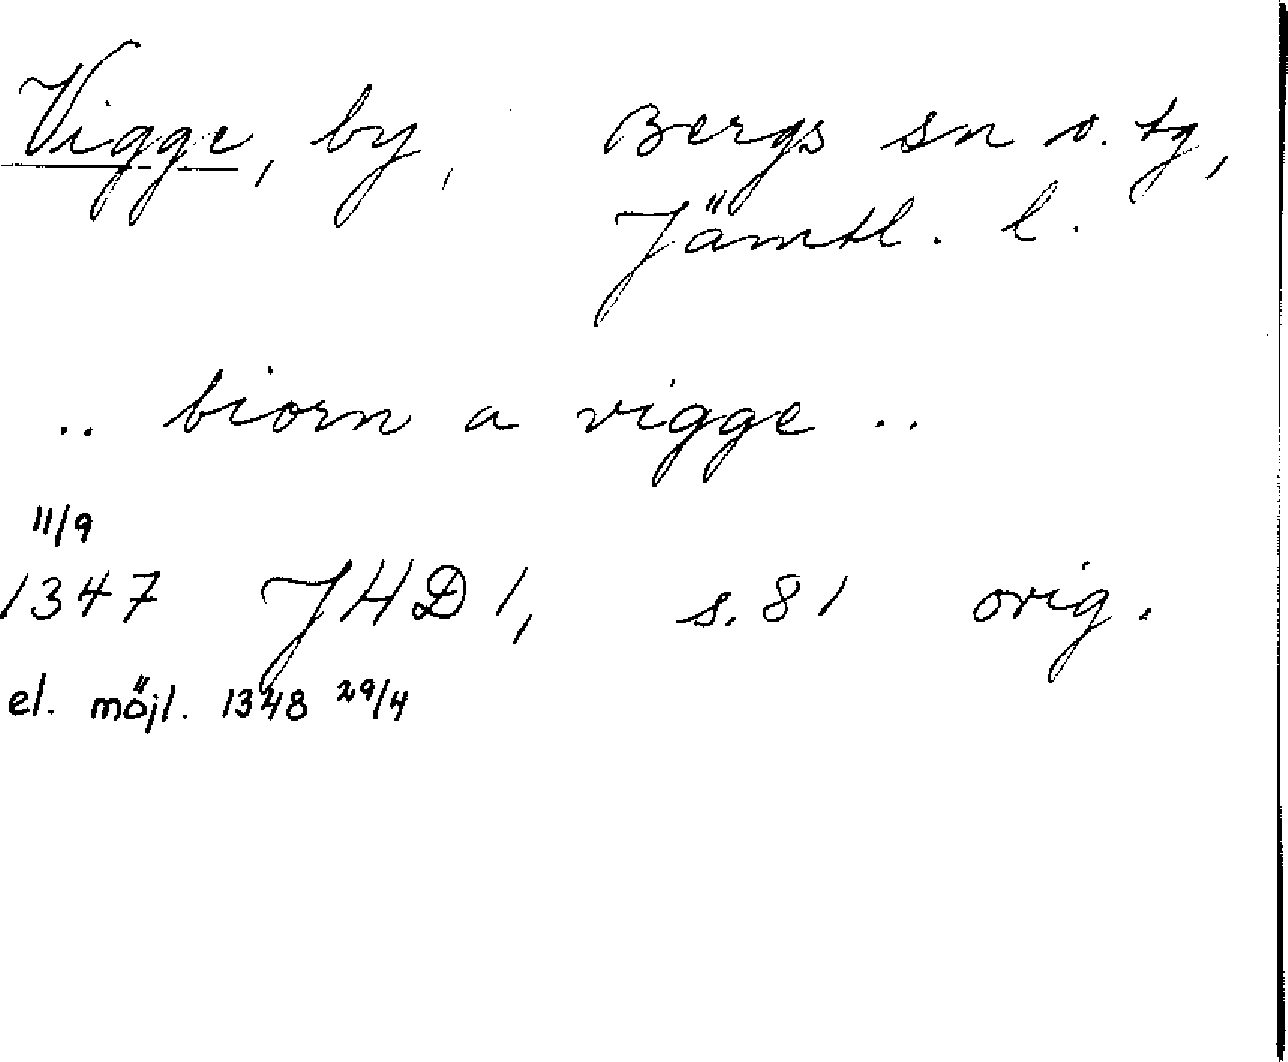 Vigge, by, Bergs sn o. tg,
Jämtl. l.
.. biorn a vigge ..
11/9
1347 JHD 1, s. 81 orig.
el. möjl. 1348 29/4